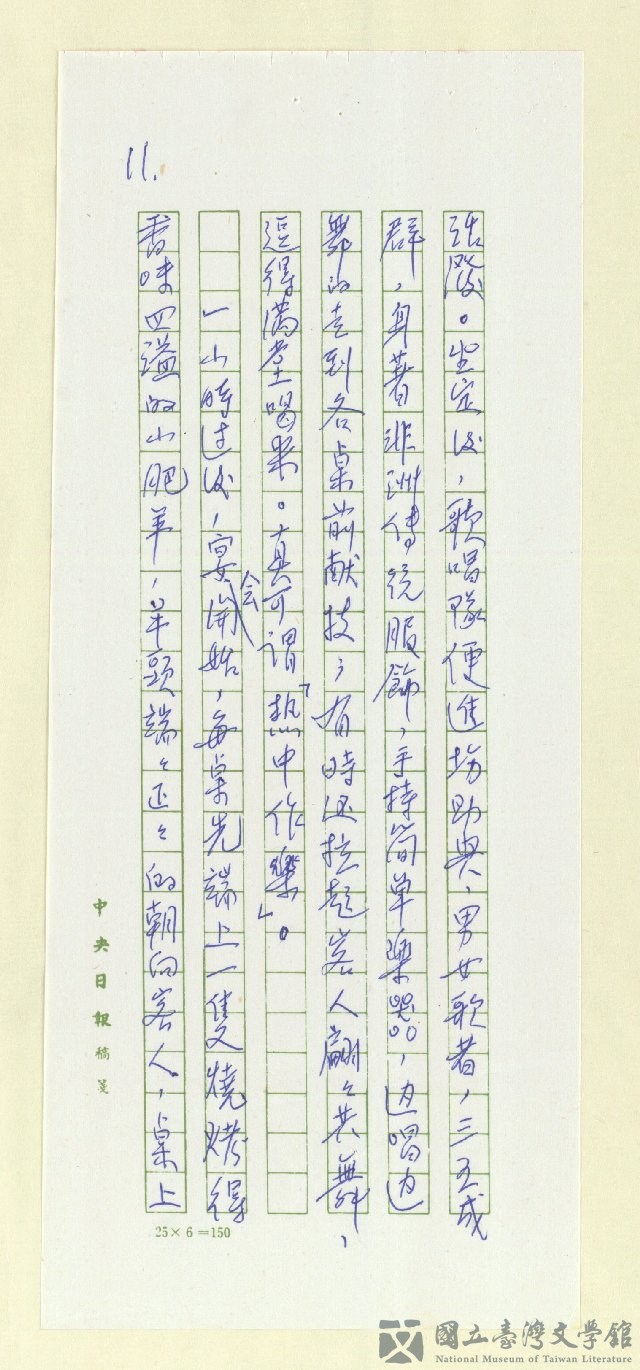 11.
活潑。坐定後，歌唱隊便進場助興，男女歌者，三五成
群，身著非洲傳統服飾，手持簡单樂器，边唱边
舞的走到各桌前献技，有時还拉起客人翩々共舞，
逗得滿堂喝采。真可謂「熱中作樂」。
一小時过後，宴会開始，每桌先端上一隻燒烤得
香味四溢的小肥羊，羊頭端々正々的朝向客人，桌上
中央日報稿箋
25×6=150
國立臺灣文學館
National Museum of Taiwan Literature